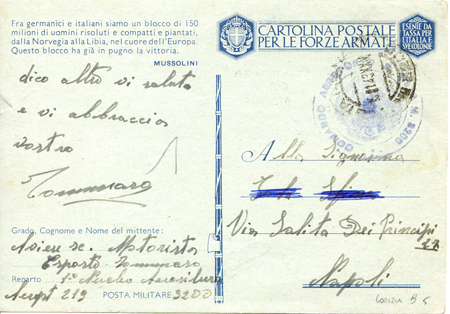 Fra germanici e italiani siamo un blocco di 150
milioni di uomini risoluti e compatti e piantati,
dalla Norvegia alla Libia, nel cuore dell'Europa.
Questo blocco ha già in pugno la vittoria.
MUSSOLINI
dico altro vi saluto
e vi abbraccio
vostro
Tommaso
Grado, Cognome e Nome del mittente:
Aviere sc. Motorista
Esposto Tommaso
Reparto 1° Nucleo
Aerop 219 POSTA MILITARE 3200
CARTOLINA POSTALE
PER LE FORZE ARMATE
ESENTE DA
TASSA PER
L'ITALIA E
SUE COLONIE
Alla Signorina
Via Salita Dei Principi
Napoli